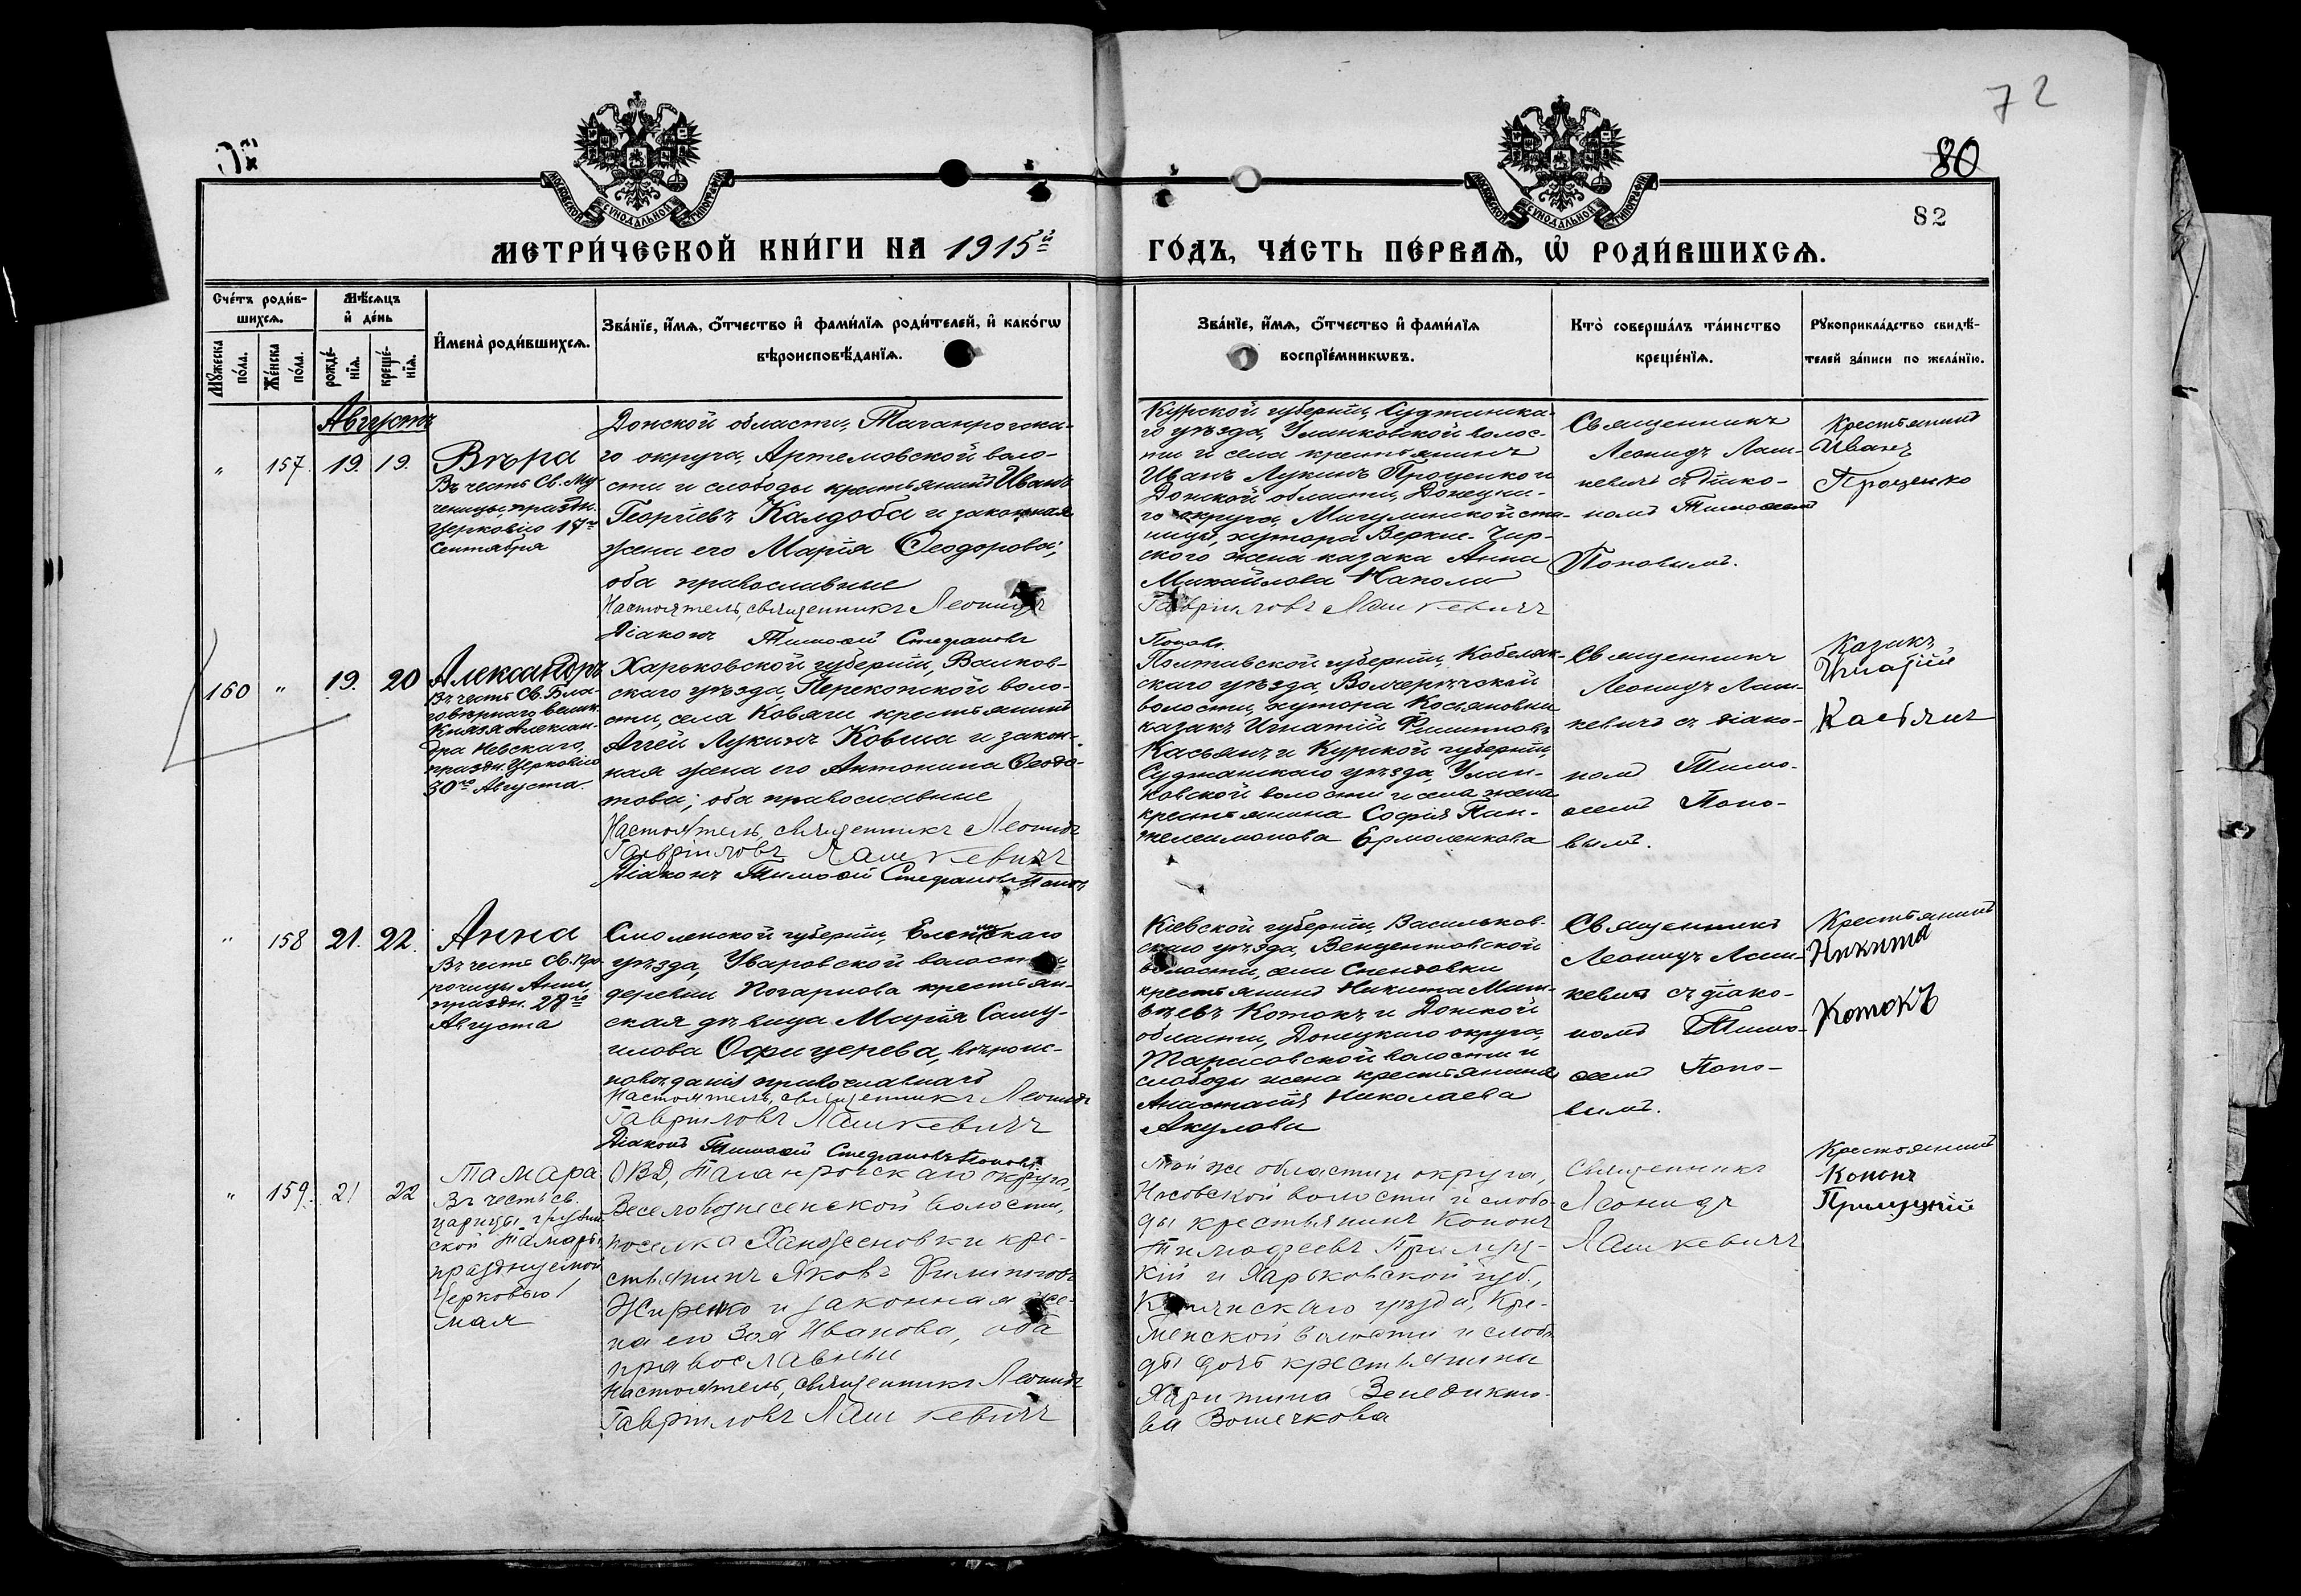 72
80
82
МОСКОВСКОЙ СѴНОДАЛЬНОЙ ТИПОГРАФІИ
МОСКОВСКОЙ СѴНОДАЛЬНОЙ ТИПОГРАФІИ
МЕТРИ́ЧЕСКОЙ КНИ́ГИ НА 1915й
ГО́ДЪ, ЧА́СТЬ ПЕ́РВАѦ, Ѡ҆ РОДИ́ВШИХСѦ.
Сче́тъ роди́в-
шихсѧ.
Мѣ́сѧцъ
и҆ де́нь
Мꙋ́жеска
по́ла.
Же́нска
по́ла.
рожде́-
нїѧ.
креще́-
нїѧ.
И҆мена̀ роди́вшихсѧ.
Зва́нїе, и҆́мѧ, ѻ҆́тчество и҆ фами́лїѧ роди́телей, и҆ како́гѡ
вѣроисповѣ́данїѧ.
Зва́нїе, и҆́мѧ, ѻ҆́тчество и҆ фами́лїѧ
воспрїе́мникѡвъ.
Кто̀ соверша́лъ та́инство
креще́нїѧ.
Рꙋкоприкла́дство свидѣ́-
телей за́писи по жела́нїю.
Августъ
" 157. 19. 19.
Вѣра
Въ честь Св. Му-
ченицы, праздн.
Церковію 17го
Сентября
Донской области, Таганрогска-
го округа, Артемовской воло-
сти и слободы крестьянинъ Иванъ
Георгіевъ Калдоба и законная
жена его Марія Ѳеодорова;
оба православные
Настоятель, священникъ Леонидъ
Діаконъ Тимоѳей Стефановъ
Курской губерніи, Суджанска-
го уѣзда, Уланковской волос-
ти и села крестьянинъ
Иванъ Лукинъ Проценко и
Донской области, Донецка-
го округа, Мигулинской ста-
ницы, хутора Верхне-Чир-
ского жена казака Анна
Михайлова
Гавріиловъ Лашкевичъ
Поповъ
Священникъ
Леонидъ Лаш-
кевичъ съ діако-
номъ Тимоѳеемъ
Поповымъ.
Крестьянинъ
Иванъ
Проценко
160 " 19. 20
Александръ
Въ честь Св. Бла-
говѣрнаго велик.
Князя Алексан-
дра Невскаго,
праздн. Церковію
30го Августа.
Харьковской губерніи, Валков-
скаго уѣзда, Перекопской воло-
сти, села Ковяги крестьянинъ
Лукинъ Ковша и закон-
ная жена его Антонина Ѳеодо-
това; оба православные
Настоятель, священникъ Леонидъ
Гавріиловъ Лашкевичъ
Діаконъ Тимоѳей Стефановъ Поповъ
Полтавской губерніи, Кобеляк-
скаго уѣзда,
волости, хутора Косьяновки
казакъ Игнатій Филипповъ
Касьянъ и Курской губерніи,
Суджанскаго уѣзда, Улан-
ковской волости и села жена
крестьянина Софія Пан-
телеимонова Ермоленкова
Священникъ
Леонидъ Лаш-
кевичъ съ діако-
номъ Тимо-
ѳеемъ Попо-
вымъ.
Казакъ
Игнатій
Касьянъ
" 158 21. 22.
Анна
Въ честь Св. Про-
рочицы Анны,
праздн. 28го
Августа
Смоленской губерніи, Ельнинскаго
уѣзда, Уваровской волости,
деревни крестьян-
ская дѣвица Марія Саму-
илова Офицерева, вѣроис-
повѣданія православнаго
Настоятель, священникъ Леонидъ
Гавріиловъ Лашкевичъ
Діаконъ Тимоѳей Стефановъ Поповъ.
Кіевской губерніи, Васильков-
скаго уѣзда, Винцентовской
волости, села
крестьянинъ Никита Мат-
вѣевъ Котокъ и Донской
области, Донецкаго округа,
Тарасовской волости и
слободы жена крестьянина
Анастасія Николаева
Акулова
Священникъ
Леонидъ Лаш-
кевичъ съ діако-
номъ Тимо-
ѳеемъ Попо-
вымъ.
Крестьянинъ
Никита
Котокъ
" 159. 21 22
Тамара
Въ честь св.
царицы грузин-
ской Тамары
празднуемой
Церковью 1
мая
ОВД, Таганрогскаго округа,
Веселовознесенской волости,
поселка Ханженковки кре-
стьянинъ Яковъ Филипповъ
и законная же-
на его Зоя Иванова, оба
православные
Настоятель, священникъ Леонидъ
Гавріиловъ Лашкевичъ
Той же области и округа,
Носовской волости и слобо-
ды крестьянинъ Кононъ
Тимофеевъ Примуц-
кій и Харьковской губ.,
Купянскаго уѣзда, Кре-
менской волости и слобо-
ды дочь крестьянина
Харитина Венедикто-
ва
Священникъ
Леонидъ
Лашкевичъ
Крестьянинъ
Кононъ
Примуцкій